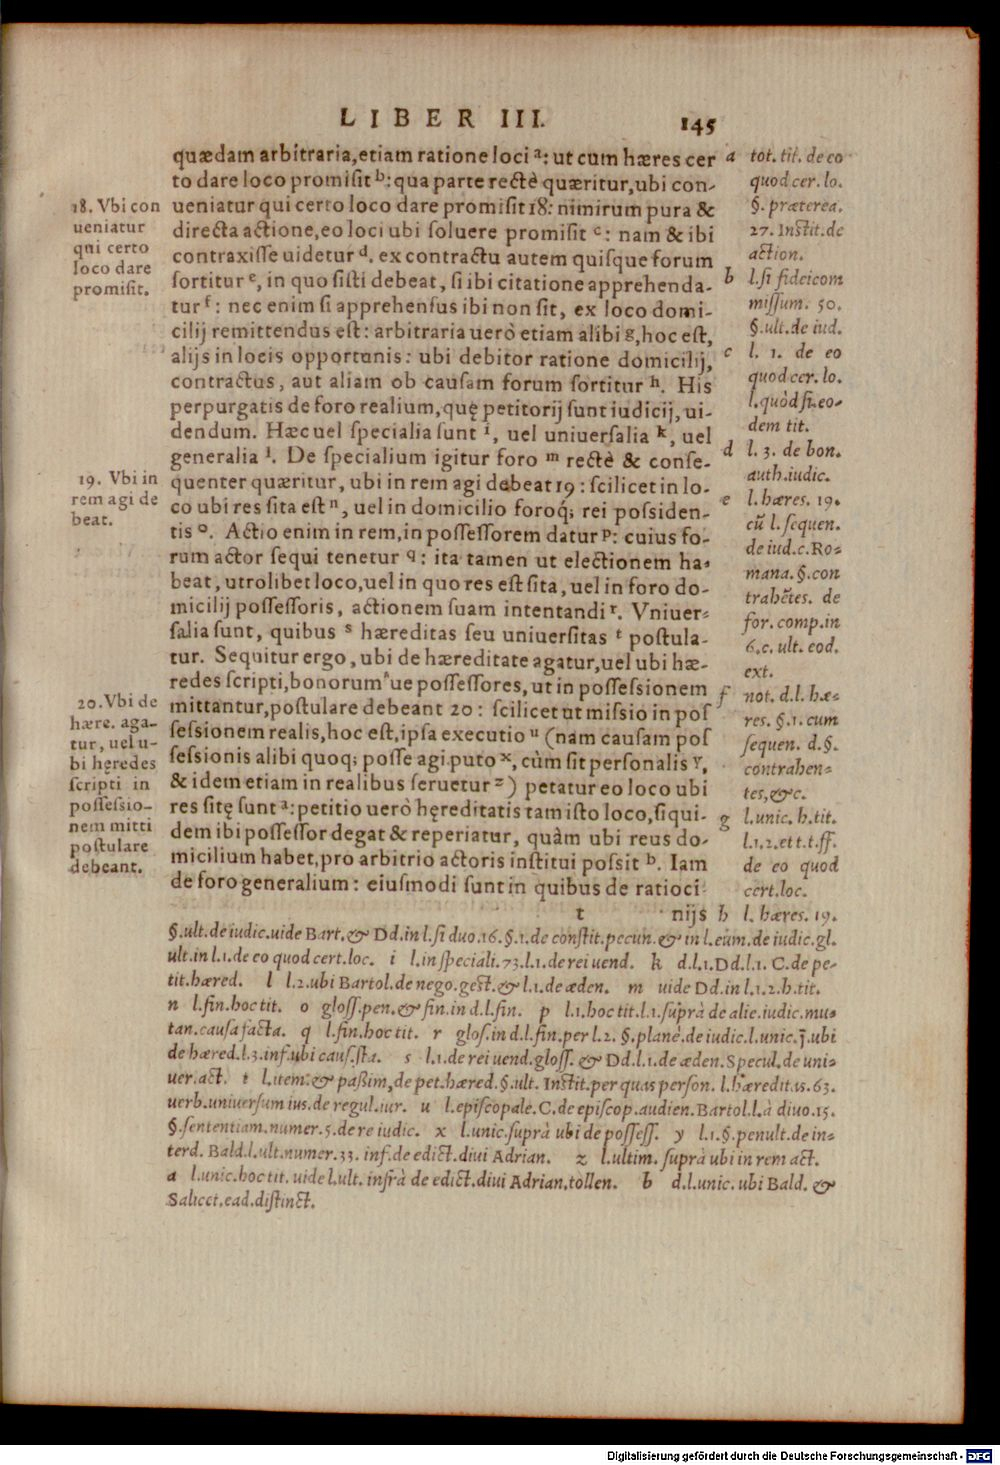 LIBER III. 145
quædam arbitraria,etiam ratione loci a: ut cum hæres cer
to dare loco promiſit b: qua parte rectè quæritur,ubi con-
ueniatur qui certo loco dare promiſit 18: nimirum pura &
directa actione,eo loci ubi ſoluere promiſit c: nam & ibi
contraxiſſe uidetur d. ex contractu autem quiſque forum
ſortitur e, in quo ſiſti debeat, ſi ibi citatione apprehenda-
tur f: nec enim ſi apprehenſus ibi non ſit, ex loco domi-
cilij remittendus eſt: arbitraria uerò etiam alibi g, hoc eſt,
alijs in locis opportunis: ubi debitor ratione domicilij,
contractus, aut aliam ob cauſam forum ſortitur h. His
perpurgatis de foro realium,quę petitorij ſunt iudicij, ui-
dendum. Hæc uel ſpecialia ſunt i, uel uniuerſalia k, uel
generalia l. De ſpecialium igitur foro m rectè & conſe-
quenter quæritur, ubi in rem agi debeat 19: ſcilicet in lo-
co ubi res ſita eſt n, uel in domicilio foroq́; rei poſsiden-
tis o. Actio enim in rem,in poſſeſſorem datur p: cuius fo-
rum actor ſequi tenetur q: ita tamen ut electionem ha-
beat, utrolibet loco,uel in quo res eſt ſita, uel in foro do-
micilij poſſeſſoris, actionem ſuam intentandi r. Vniuer-
ſalia ſunt, quibus s hæreditas ſeu uniuerſitas t poſtula-
tur. Sequitur ergo, ubi de hæreditate agatur,uel ubi hæ-
redes ſcripti,bonorum'ue poſſeſſores, ut in poſſeſsionem
mittantur,poſtulare debeant 20: ſcilicet ut miſsio in poſ
ſeſsionem realis,hoc eſt,ipſa executio u (nam cauſam poſ
ſeſsionis alibi quoq; poſſe agi puto x, cùm ſit perſonalis y,
& idem etiam in realibus ſeruetur z) petatur eo loco ubi
res ſitę ſunt a: petitio uerò hęreditatis tam iſto loco, ſiqui-
dem ibi poſſeſſor degat & reperiatur, quàm ubi reus do-
micilium habet,pro arbitrio actoris inſtitui poſsit b. Iam
de foro generalium: eiuſmodi ſunt in quibus de ratioci
t nijs
18. Vbi con
ueniatur
qui certo
loco dare
promiſit.
19. Vbi in
rem agi de
beat.
20. Vbi de
hære. aga-
tur, uel u-
bi hęredes
ſcripti in
poſſeſsio-
nem mitti
poſtulare
debeant.
a tot. tit. de eo
quod cer. lo.
§. præterea.
27. Inſtit. de
action.
b l. ſi fideicom
miſſum. 50.
§. ult. de iud.
c l. 1. de eo
quod cer. lo.
l. quòd ſi. eo-
dem tit.
d l. 3. de bon.
auth. iudic.
e l. hæres. 19.
cū l. ſequen.
de iud. c. Ro-
mana. §. con
trahētes. de
for. comp. in
6. c. ult. eod.
ext.
f not. d. l. hæ-
res. §. 1. cum
ſequen. d. §.
contrahen-
tes, &c.
g l. unic. h. tit.
l. 1. 2. et t. t. ff.
de eo quod
cert. loc.
h l. hæres. 19.
§. ult. de iudic. uide Bart. & Dd. in l. ſi duo. 16. §. 1. de conſtit. pecun. & in l. eum. de iudic. gl.
ult. in l. 1. de eo quod cert. loc. i l. in ſpeciali. 73. l. 1. de rei uend. k d. l. 1. Dd. l. 1. C. de pe-
tit. hæred. l l. 2. ubi Bartol. de nego. geſt. & l. 1. de æden. m uide Dd. in l. 1. 2. h. tit.
n l. fin. hoc tit. o gloſſ. pen. & fin. in d. l. fin. p l. 1. hoc tit. l. 1. ſuprà de alie. iudic. mu-
tan. cauſa facta. q l. fin. hoc tit. r gloſ. in d. l. fin. per l. 2. §. planè. de iudic. l. unic. j. ubi
de hæred. l. 3. inf. ubi cauſ. ſta. s l. 1. de rei uend. gloſſ. & Dd. l. 1. de æden. Specul. de uni-
uer. act. t l. item. & paßim, de pet. hæred. §. ult. Inſtit. per quas perſon. l. hæreditas. 63.
uerb. uniuerſum ius. de regul. iur. u l. epiſcopale. C. de epiſcop. audien. Bartol. l. à diuo. 15.
§. ſententiam. numer. 5. de re iudic. x l. unic. ſuprà ubi de poſſeſſ. y l. 1. §. penult. de in-
terd. Bald. l. ult. numer. 33. inf. de edict. diui Adrian. z l. ultim. ſuprà ubi in rem act.
a l. unic. hoc tit. uide l. ult. infrà de edict. diui Adrian. tollen. b d. l. unic. ubi Bald. &
Salicet. ead. diſtinct.
Digitalisierung gefördert durch die Deutsche Forschungsgemeinschaft - DFG